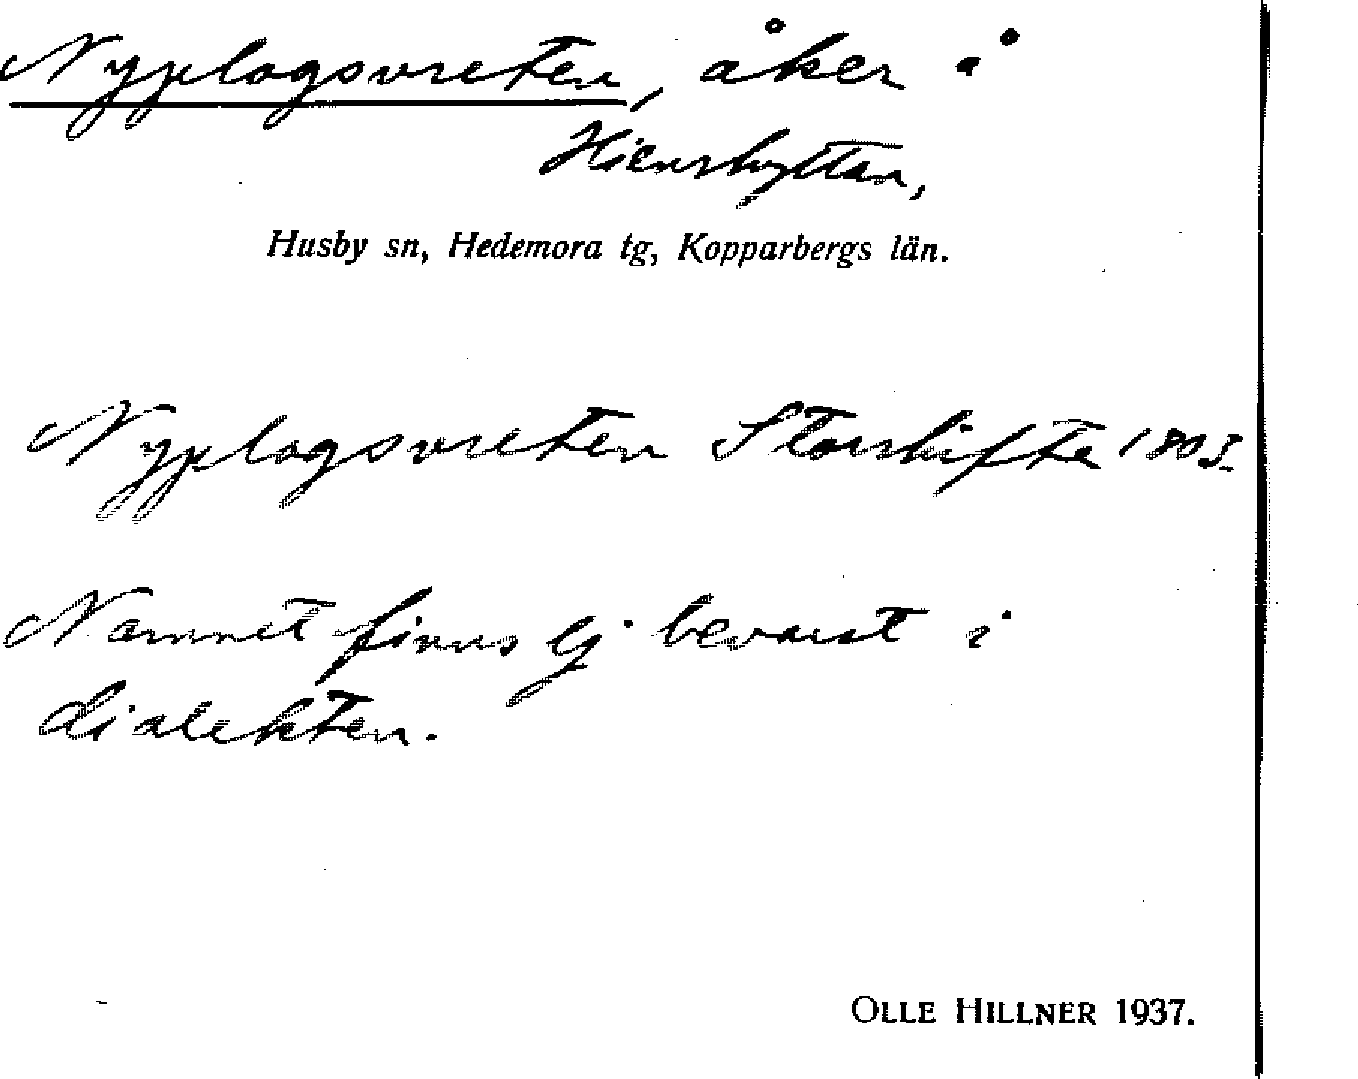 Nyplogsvreten, åker å
Hienshyttan,
Husby sn, Hedemora tg, Kopparbergs län.
Nyplogsvreten Storskifte 1805.
Namnet finns ej bevarat i
dialekten.
OLLE HILLNER 1937.